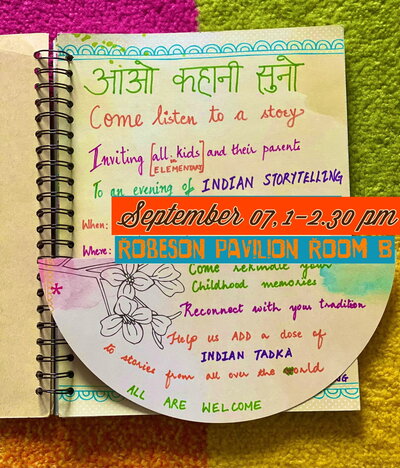 आंओ कहानी सुनो
Come listen to a story
Inviting [all kids] and their parents
in
ELEMENTARY
To an evening of INDIAN STORYTELLING
When: September 07, 1-2.30 pm
Where: ROBESON PAVILION ROOM B
Come rekindle your
Childhood memories
* Reconnect with your tradition
Help us ADD a dose of
INDIAN TADKA
to stories from all over the world
ALL ARE WELCOME